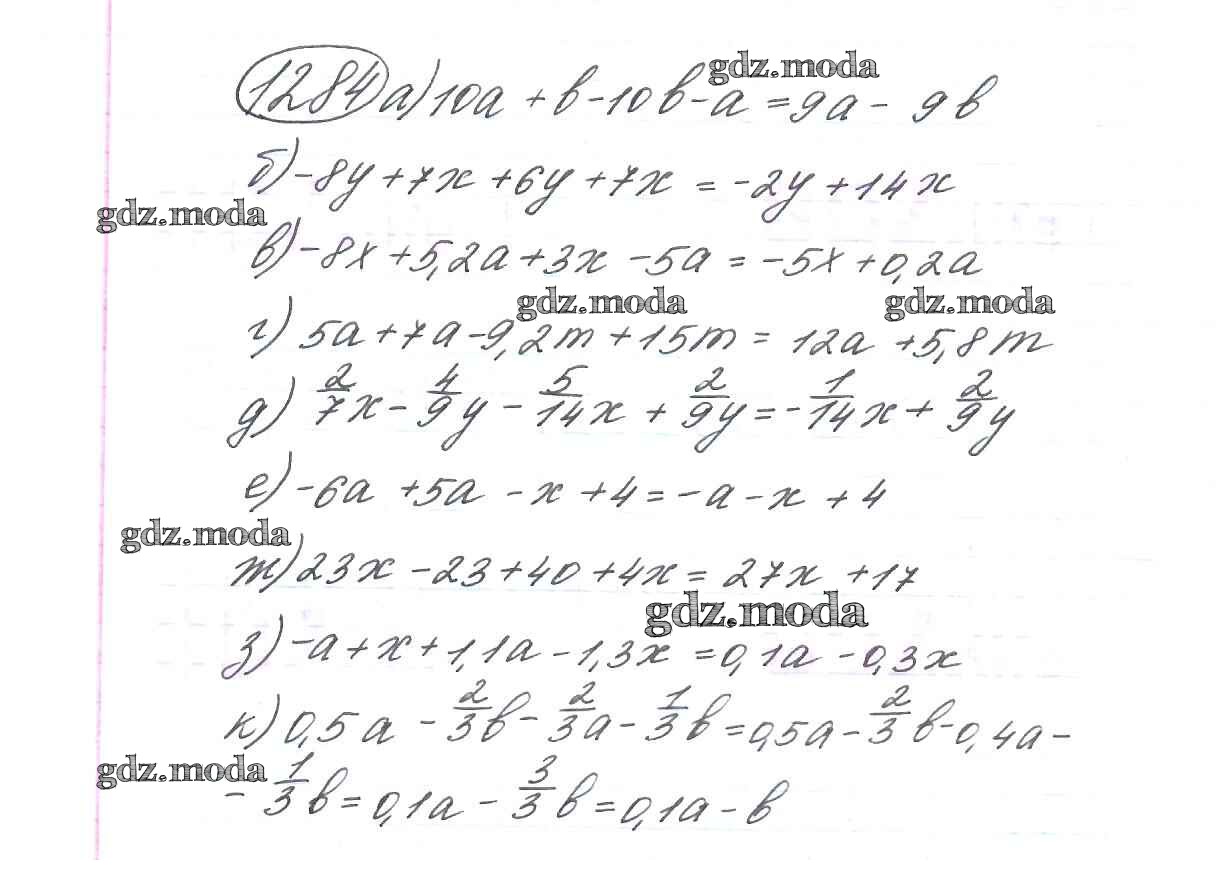 1284 а) 10a + b - 10b - a = 9a - 9b
gdz.moda
б) -8y + 7x + 6y + 7x = -2y + 14x
gdz.moda
в) -8x + 5,2a + 3x - 5a = -5x + 0,2a
gdz.moda gdz.moda
г) 5a + 7a - 9,2m + 15m = 12a + 5,8m
д) 2/7x - 4/9y - 5/14x + 2/9y = -1/14x + 2/9y
е) -6a + 5a - x + 4 = -a - x + 4
gdz.moda
ж) 23x - 23 + 40 + 4x = 27x + 17
gdz.moda
з) -a + x + 1,1a - 1,3x = 0,1a - 0,3x
к) 0,5a - 2/3b - 2/3a - 1/3b = 0,5a - 2/3b - 0,4a -
gdz.moda
- 1/3b = 0,1a - 3/3b = 0,1a - b